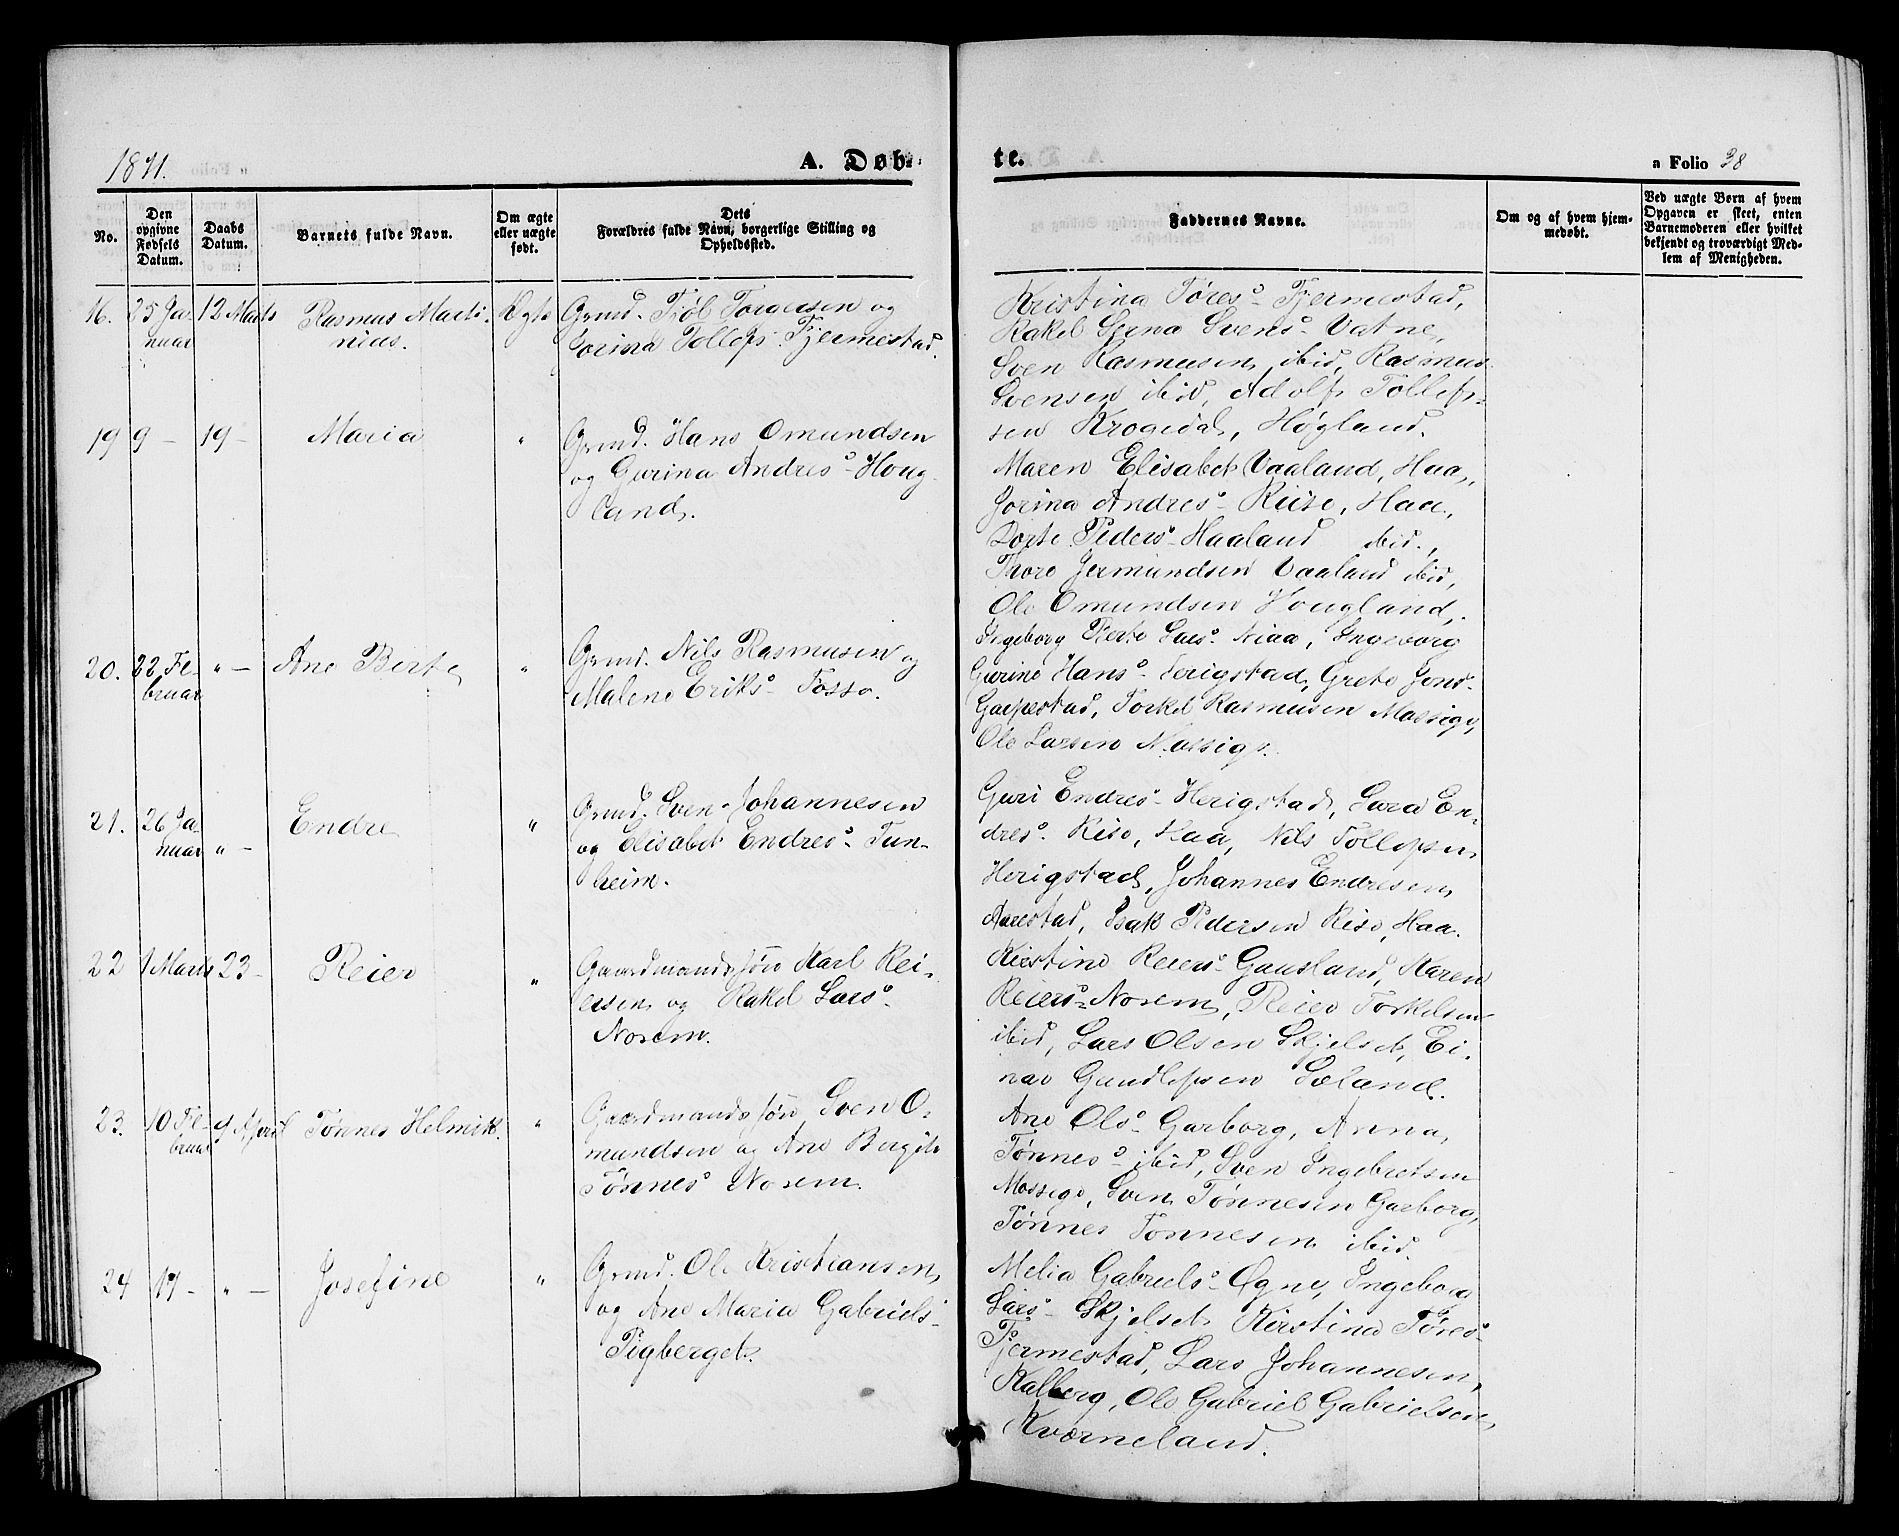 1871.
A. Døb-
te.
a Folio 38
No.
Den opgivne Fødsels Datum.
Daabs Datum.
Barnets fulde Navn.
Om ægte eller uægte født.
Dets Forældres fulde Navn, borgerlige Stilling og Opholdssted.
Faddernes Navne.
Om og af hvem hjemmedøbt.
Ved uægte Børn af hvem Opgaven er skeet, enten Barnemoderen eller hvilket bekjendt og troværdigt Medlem af Menigheden.
16. 25 Ja- 12 Marts Rasmus Marti- Ægte Grmd. Tjøl Torgersen og
nuar nius. Jorina Tollefs- Fjermestad.
Kristina Tøres- Fjermestad,
Rakel Serna Svens- Vatne,
Sven Rasmusen ibid, Rasmus
Svensen ibid, Adolf Tollef-
sen Krogedal, Høgland.
19 9 - 19 - Maria " Grmd. Hans Omundsen
og Gurina Andres- Houg-
land.
Maren Elisabet Vaaland, Haa,
Jorina Andres- Riise, Haa,
Dorte Peders- Haaland ibid.,
Thore Jermundsen Vaaland ibid,
Ole Omundsen Hougland,
20. 22 Fe- " - Ane Berte " Grmd. Nils Rasmusen og
bruar Malene Eriks- Fosse.
Ingeborg Berte Lars- Niaa, Ingeborg
Gurine Hans- Herigstad, Grete Jons-
Garpestad, Torkel Rasmusen Massige,
Ole Larsen Massige.
21. 26 Ja- Endre " Grmd. Sven Johannesen
nuar " - og Elisabet Endres- Tun-
heim.
Guri Endres- Herigstad, Sara En-
dres- Rise, Haa, Nils Tollefsen
Herigstad, Johannes Endresen
Aarestad, Isak Pedersen Rise, Haa.
22 1 Marts 23 - Reier " Gaardmandssøn Karl Rei-
ersen og Rakel Lars-
Norem.
Kirstine Reiers- Gausland, Karen
Reiers- Norem, Reier Torkelsen
ibid, Lars Olsen Skjelset, Ei-
nar Gundlefsen Sæland.
23. 10 Fe- 9 April Tønnes Helmik. " Gaardmandssøn Sven O-
bruar mundsen og Ane Bergite
Tønnes- Norem.
Ane Ols- Garborg, Anna
Tønnes- ibid, Sven Ingebretsen
Mossige, Sven Tønnesen Garborg,
Tønnes Tønnesen ibid.
24 17 - " - Josefine " Grmd. Ole Kristiansen
og Ane Maria Gabriels-
Tigberget.
Melia Gabriels- Ogne, Ingeborg
Lars- Skjelset, Kirstina Tøres-
Fjermestad, Lars Johannesen
Kalberg, Ole Gabriel Gabrielsen
Kværneland.